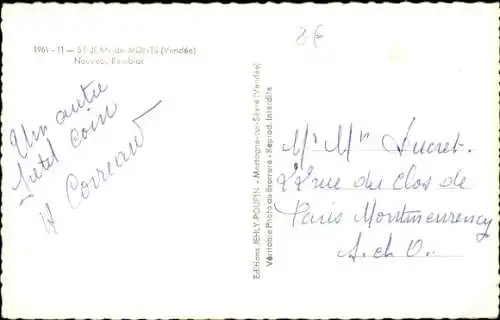 1961-11 — ST-JEAN-de-MONTS (Vendée)
Nouveau Remblai
8€
Un autre
petit coin
H Correau
Editions JEHLY-POUPIN - Mortagne-sur-Sèvre (Vendée)
Véritable Photo au Bromure - Reprod. Interdite
Mr Mme Ducret.
22 rue du Clos de
Paris Montmorency
S. et O.